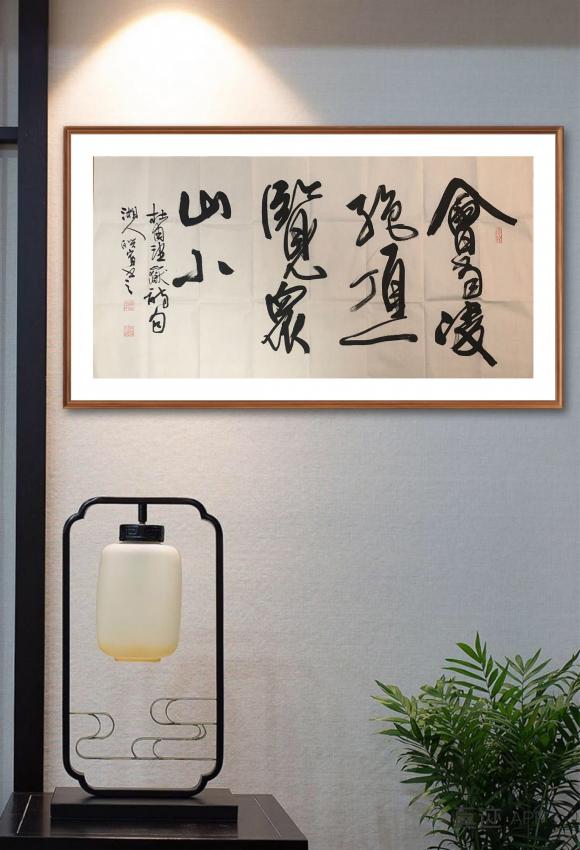 會當凌
絶頂一
覽衆
山小
杜甫望嶽詩句
湖人書之
APP